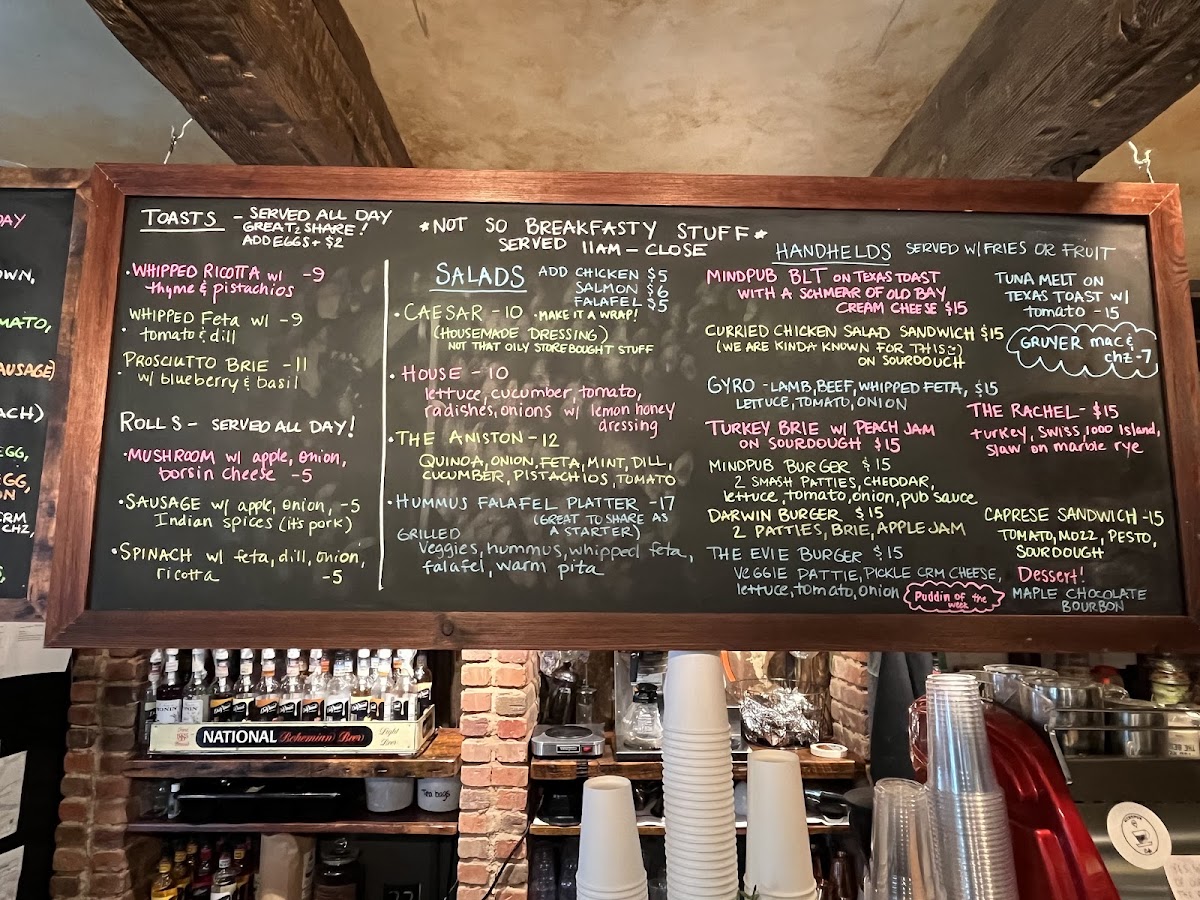 AY
OWN,
MATO,
AUSAGE)
ACH)
EGG,
EGG,
ON
CRM
CHZ,
TOASTS - SERVED ALL DAY
GREAT 2 SHARE!
ADD EGGS + $2
• WHIPPED RICOTTA w/ -9
thyme & pistachios
WHIPPED Feta w/ -9
• tomato & dill
PROSCIUTTO BRIE -11
• w/ blueberry & basil
ROLLS - SERVED ALL DAY!
• MUSHROOM w/ apple, onion,
borsin cheese -5
• SAUSAGE w/ apple, onion, -5
Indian spices (it's pork)
• SPINACH w/ feta, dill, onion,
ricotta -5
*NOT SO BREAKFASTY STUFF*
SERVED 11AM - CLOSE
SALADS
ADD CHICKEN $5
SALMON $6
FALAFEL $5
• CAESAR - 10 • MAKE IT A WRAP!
(HOUSEMADE DRESSING)
NOT THAT OILY STOREBOUGHT STUFF
• HOUSE - 10
lettuce, cucumber, tomato,
radishes, onions w/ lemon honey
dressing
• THE ANISTON - 12
QUINOA, ONION, FETA, MINT, DILL,
CUCUMBER, PISTACHIOS, TOMATO
• HUMMUS FALAFEL PLATTER -17
(GREAT TO SHARE AS
A STARTER)
GRILLED
Veggies, hummus, whipped feta,
falafel, warm pita
HANDHELDS SERVED W/ FRIES OR FRUIT
MINDPUB BLT ON TEXAS TOAST
WITH A SCHMEAR OF OLD BAY
CREAM CHEESE $15
CURRIED CHICKEN SALAD SANDWICH $15
(WE ARE KINDA KNOWN FOR THIS :)
ON SOURDOUGH
GYRO - LAMB, BEEF, WHIPPED FETA, $15
LETTUCE, TOMATO, ONION
TURKEY BRIE w/ PEACH JAM
ON SOURDOUGH $15
MINDPUB BURGER $15
2 SMASH PATTIES, CHEDDAR,
lettuce, tomato, onion, pub sauce
DARWIN BURGER $15
2 PATTIES, BRIE, APPLE JAM
THE EVIE BURGER $15
VEGGIE PATTIE, PICKLE CRM CHEESE,
lettuce, tomato, onion
TUNA MELT ON
TEXAS TOAST w/
tomato - 15
GRUYER mac &
chz - 7
THE RACHEL - $15
turkey, SWISS, 1000 Island,
slaw on marble rye
CAPRESE SANDWICH -15
TOMATO, MOZZ, PESTO,
SOURDOUGH
Dessert!
Puddin of the
week
MAPLE CHOCOLATE
BOURBON
NATIONAL Bohemian Brew
Light
Beer
Tea bags